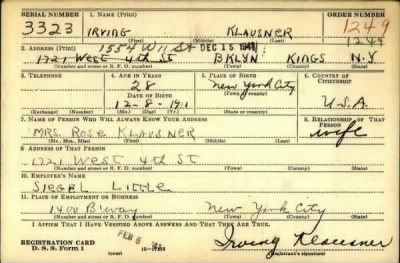 SERIAL NUMBER 1. NAME (Print) ORDER NUMBER
3323 IRVING KLAUSNER 1249
(First) (Middle) (Last) 1244
2. ADDRESS (Print) 1554 W 11 St DEC 15 1941
1721 WEST 4th ST BKLYN KINGS N.Y
(Number and street or R. F. D. number) (Town) (County) (State)
3. TELEPHONE 4. AGE IN YEARS 5. PLACE OF BIRTH 6. COUNTRY OF CITIZENSHIP
28 New York City
DATE OF BIRTH (Town or county)
12-8-1911 U.S.A.
(Exchange) (Number) (Mo.) (Day) (Yr.) (State or country)
7. NAME OF PERSON WHO WILL ALWAYS KNOW YOUR ADDRESS 8. RELATIONSHIP OF THAT PERSON
MRS. ROSE KLAUSNER wife
(Mr., Mrs., Miss) (First) (Middle) (Last)
9. ADDRESS OF THAT PERSON
1721 WEST 4th ST
(Number and street or R. F. D. number) (Town) (County) (State)
10. EMPLOYER'S NAME
SIEGEL LITTLE
11. PLACE OF EMPLOYMENT OR BUSINESS
1400 B'way New York City
(Number and street or R. F. D. number) (Town) (County) (State)
I AFFIRM THAT I HAVE VERIFIED ABOVE ANSWERS AND THAT THEY ARE TRUE.
REGISTRATION CARD FEB Irving Klausner
D. S. S. Form 1 (Registrant's signature)